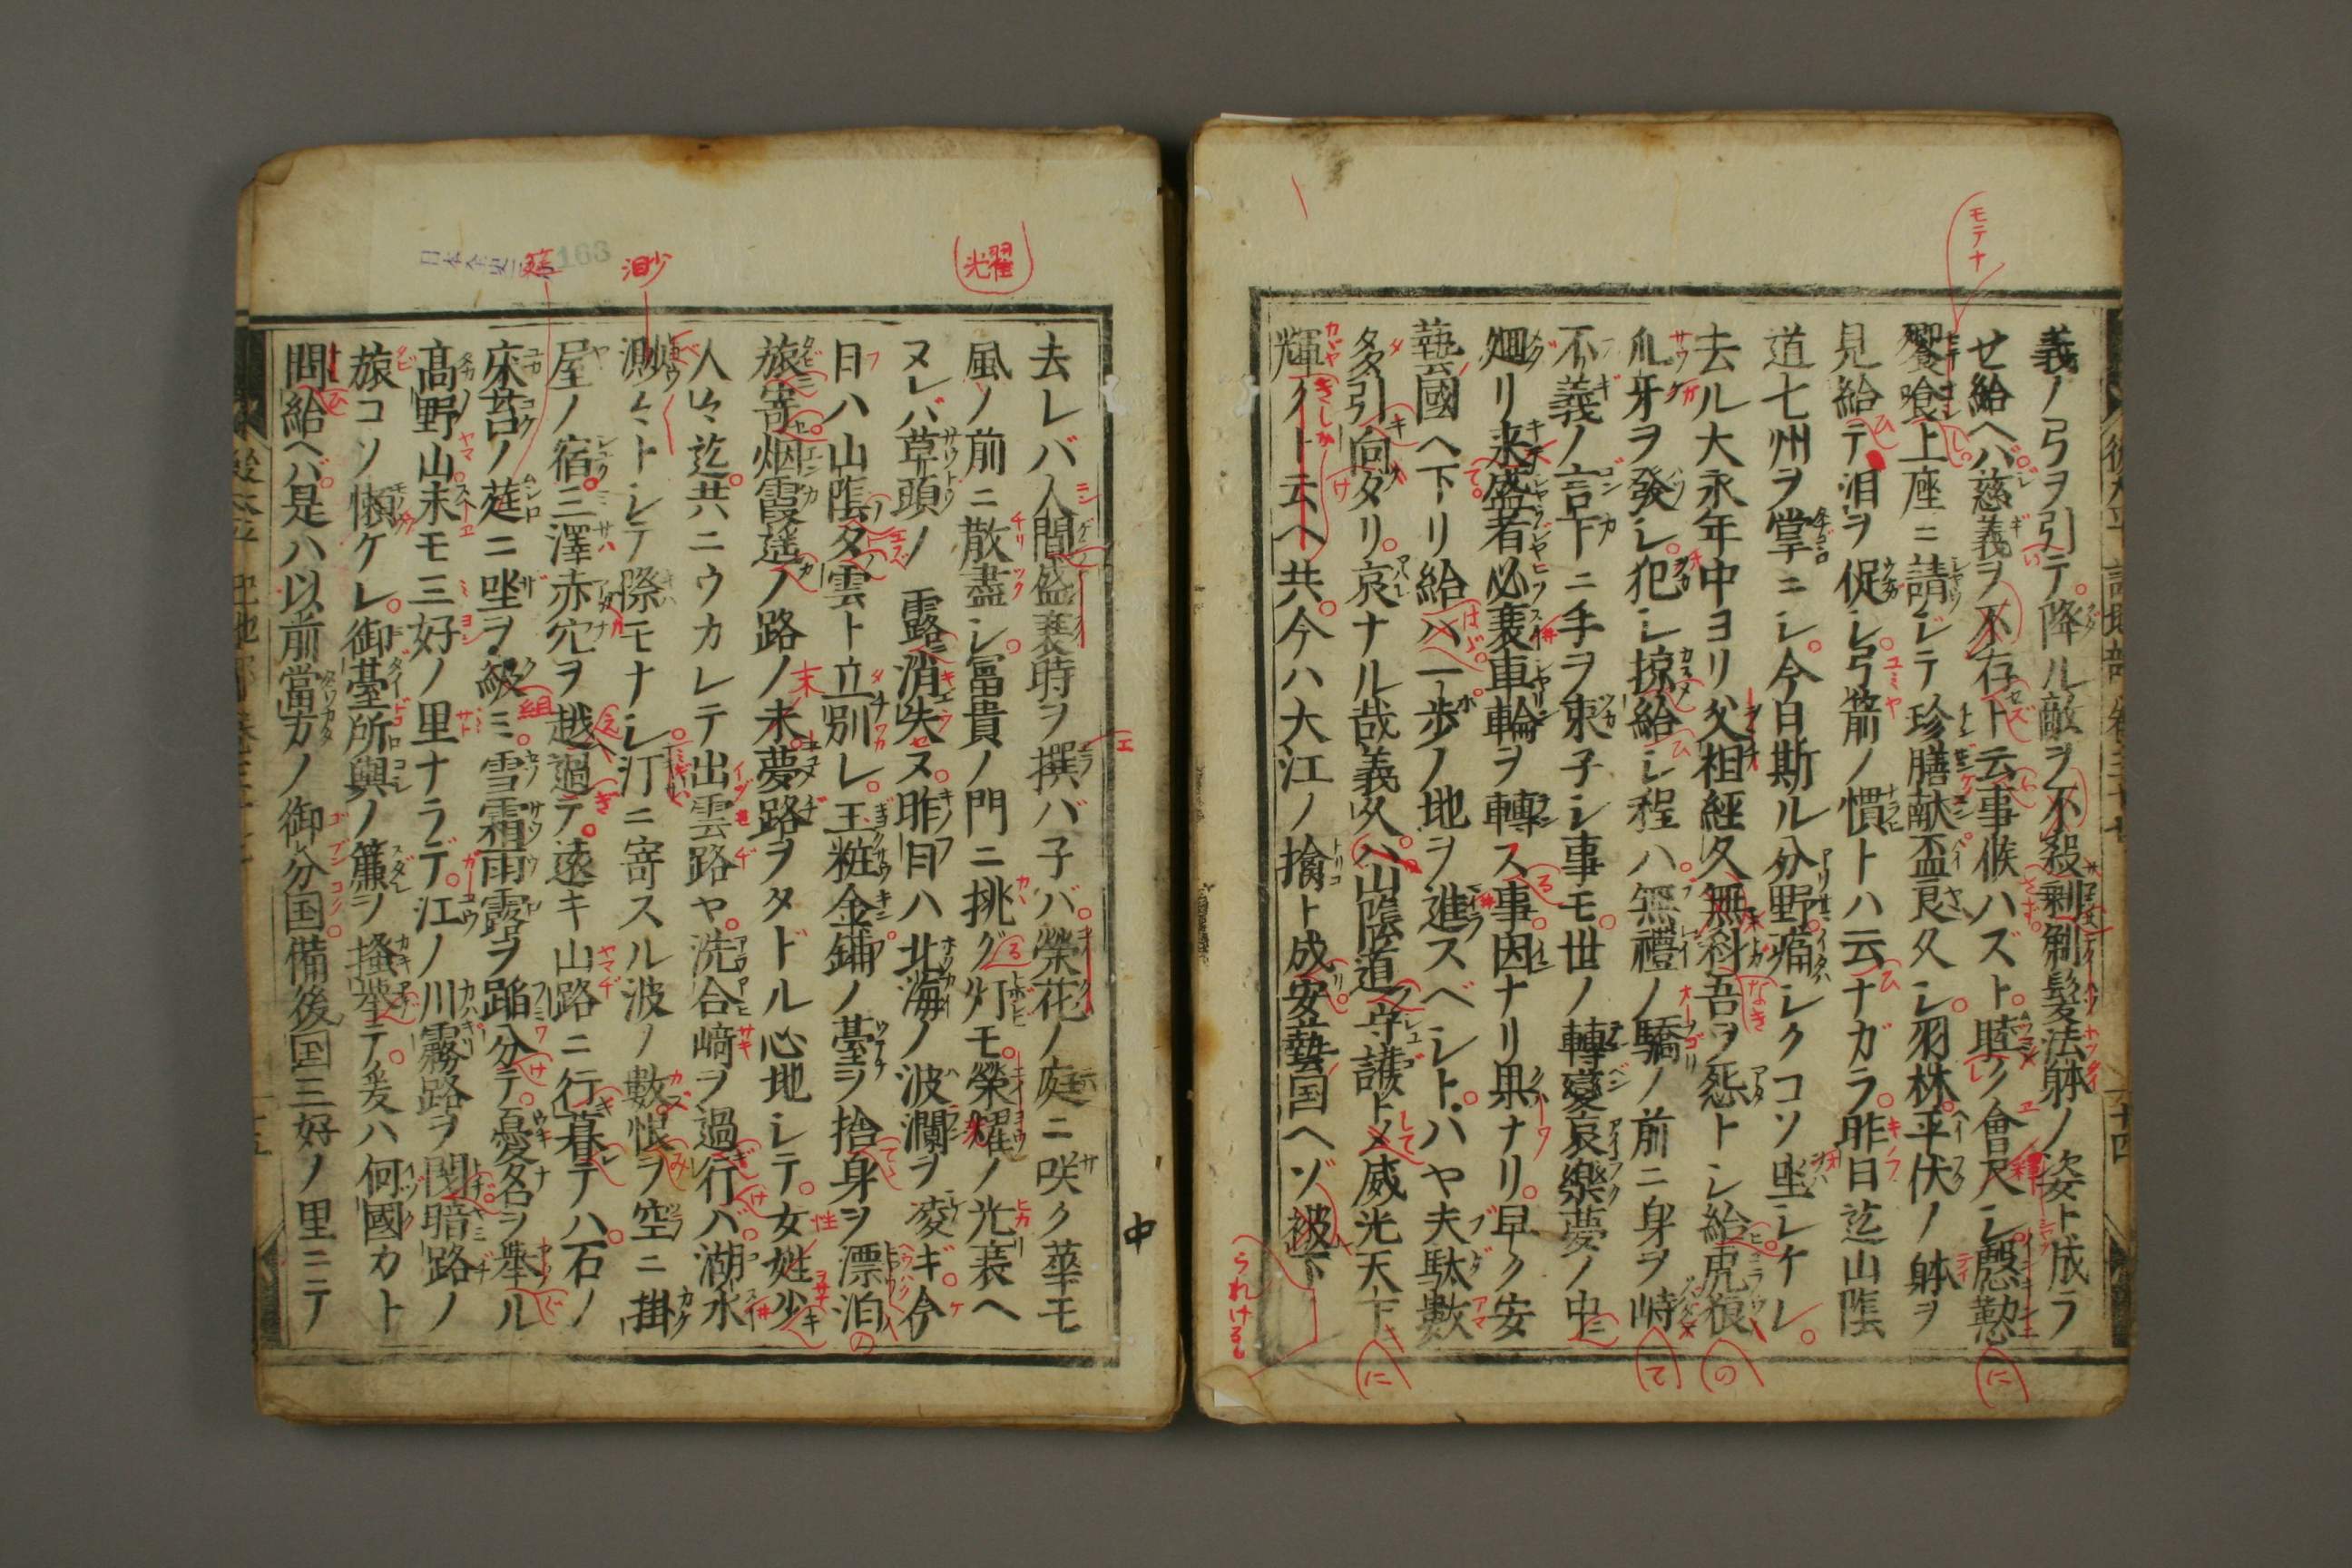 義ノ弓ヲ引テ降ル敵ヲ不殺剃髪法躰ノ姿ト成ラ
せ給ヘバ慈義ヲ不存ト云事候ハズト睦ク會尺シ慇懃
饗喰上座ニ請ジテ珍膳献盃良久シ羽林平伏ノ躰ヲ
見給テ泪ヲ促シ弓箭ノ慣トハ云ナガラ昨日迄山陰
道七州ヲ掌ニシ今日斯ル分野痛シクコソ坐シケレ
去ル大永年中ヨリ父祖經久無科吾ヲ怨トシ給虎狼
爪牙ヲ發シ犯シ掠給シ程ハ無禮ノ驕ノ前ニ身ヲ峙
不義ノ言下ニ手ヲ束子シ事モ世ノ轉變哀樂夢ノ中
廻リ来盛者必衰車輪ヲ轉ス事因ナリ果ナリ早ク安
藝國ヘ下リ給ハ一歩ノ地ヲ進スベシトバヤ夫駄數
多引向タリ哀ナル哉義久ハ山陰道守護トメ威光天下
輝クト云ヘ共今ハ大江ノ擒ト成安藝国ヘゾ被下
モテナ
に
の
て
に
られける
中
耀
渺
筵
168
去レバ人間盛衰時ヲ撰バ子バ榮花ノ庭ニ咲ク華モ
風ノ前ニ散盡シ冨貴ノ門ニ挑グ灯モ榮耀ノ光衰ヘ
ヌレバ草頭ノ露消失ヌ昨日ハ北海ノ波瀾ヲ凌ギ今
日ハ山陰夕雲ト立別レ玉粧金鋪ノ臺ヲ捨身ヲ漂泊
旅寄烟霞遥ノ路ノ末夢路ヲタドル心地シテ女姓少
人々迄共ニウカレテ出雲路ヤ洗合﨑ヲ過行バ湖水
渺々トシテ際モナシ汀ニ寄スル波ノ數恨ヲ空ニ掛
屋ノ宿三澤赤穴ヲ越過テ遠キ山路ニ行暮テハ石ノ
床苔ノ莚ニ坐ヲ級ミ雪霜雨露ヲ踏分テ憂名ヲ舉ル
髙野山末モ三好ノ里ナラデ江ノ川霧路ヲ閇暗路ノ
旅コソ懶ケレ御臺所輿ノ簾ヲ搔舉テ爰ハ何國カト
問給ヘバ是ハ以前當方ノ御分国備後国三好ノ里ニテ